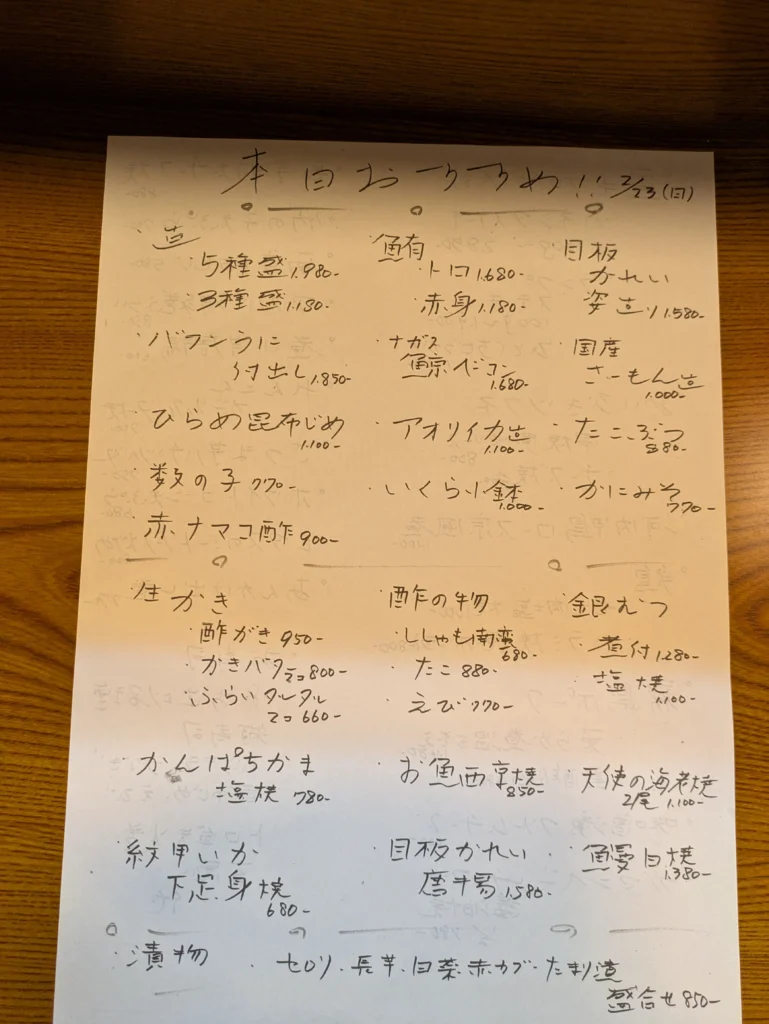 本日おすすめ!! 2/23(日)
・造
・5種盛 1.980-
・3種盛 1.130-
・バフンうに
付出し 1.850-
・ひらめ昆布じめ
1.100-
・数の子 770-
・赤ナマコ酢 900-
・鮪
・トロ 1.680-
・赤身 1.180-
・ナガス
鯨ベーコン
1.680-
・アオリイカ造
1.100-
・いくら小鉢
1.000-
・目板
かれい
姿造り 1.580-
・国産
さーもん造
1.000-
・たこぶつ
880-
・かにみそ
770-
・生かき
・酢がき 950-
・かきバタ 2コ 800-
・ふらいタルタル
2コ 660-
・酢の物
・ししゃも南蛮
680-
・たこ 880-
・えび 770-
・銀むつ
・煮付 1.280-
・塩焼
1.100-
・かんぱちかま
塩焼 780-
・お魚西京焼
850-
・天使の海老焼
2尾 1.100-
・紋甲いか
下足身焼
680-
・目板かれい
唐揚 1.580-
・鰻白焼
1.380-
・漬物
・セロリ・長芋・白菜・赤カブ・たまり漬
盛合せ 850-